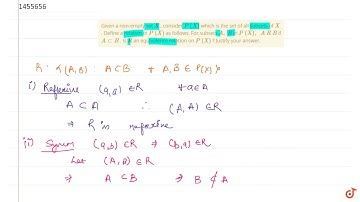 1455656
Given a non-empty set X, consider P(X) which is the set of all subsets of X
. Define a relation in P(X) as follows. For subsets A, B in P(X), A R B if
A ⊂ B. Is R an equivalence relation on P(X)? Justify your answer.
R: {(A,B): A⊂B ∀ A,B ∈ P(X)}
i) Reflexive (a,a) ∈R ∀ a∈A
A ⊂ A ∴ (A,A) ∈R
⇒ R is reflexive
ii) Symm (a,b) ∈R ⇒ (b,a) ∈R
Let (A,B) ∈R
⇒ A ⊂B ⇒ B ⊄ A